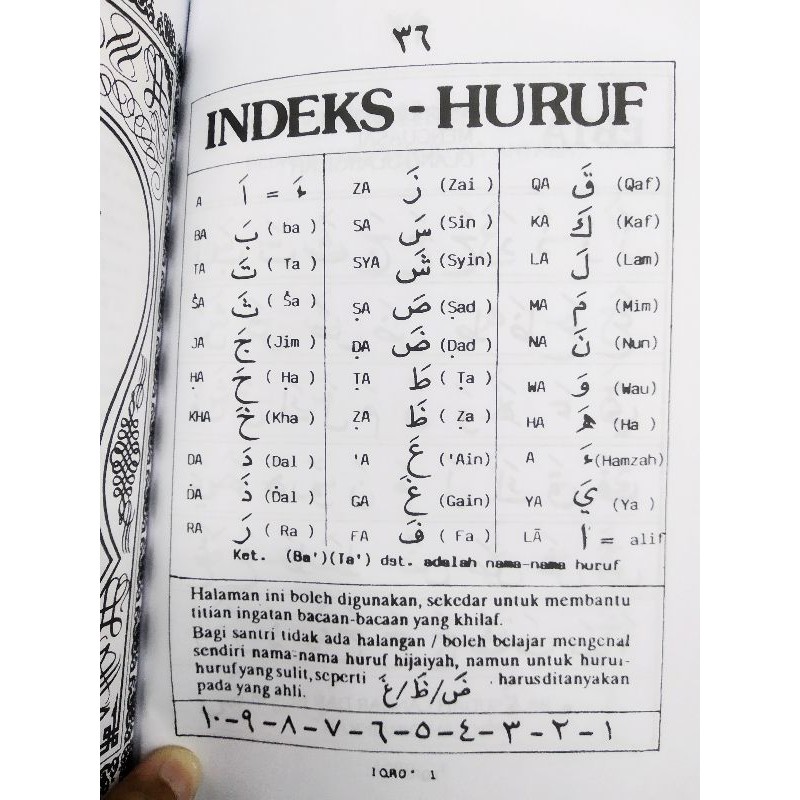 ٣٦
INDEKS - HURUF
A اَ = ءَ ZA زَ (Zai ) QA قَ (Qaf)
BA بَ ( ba ) SA سَ (Sin ) KA كَ (Kaf)
TA تَ ( Ta ) SYA شَ (Syin) LA لَ (Lam)
ṠA ثَ ( Ṡa ) ṢA صَ (Ṣad ) MA مَ (Mim)
JA جَ (Jim ) ḌA ضَ (Ḍad ) NA نَ (Nun)
ḤA حَ ( Ḥa ) ṬA طَ ( Ṭa ) WA وَ (Wau)
KHA خَ (Kha ) ẒA ظَ ( Ẓa ) HA هَ (Ha )
DA دَ (Dal ) 'A عَ ('Ain) A ءَ (Hamzah)
ḊA ذَ (Ḋal ) GA غَ (Gain) YA يَ (Ya )
RA رَ ( Ra ) FA فَ ( Fa ) LĀ = alif
Ket. (Ba')(Ta') dst. adalah nama-nama huruf
Halaman ini boleh digunakan, sekedar untuk membantu
titian ingatan bacaan-bacaan yang khilaf.
Bagi santri tidak ada halangan / boleh belajar mengenal
sendiri nama-nama huruf hijaiyah, namun untuk huruf-
huruf yang sulit, seperti عَ/ظَ/ضَ . harus ditanyakan
pada yang ahli.
١ - ٢ - ٣ - ٤ - ٥ - ٦ - ٧ - ٨ - ٩ - ١٠
IQRO' 1